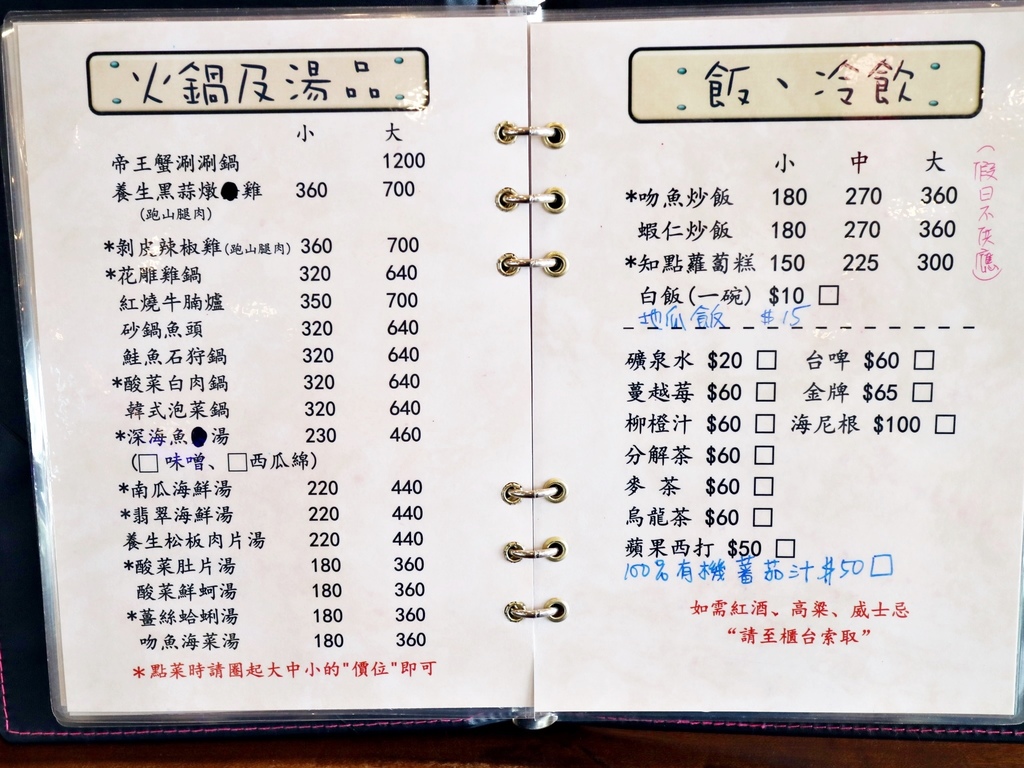 火鍋及湯品
小 大
帝王蟹涮涮鍋 1200
養生黑蒜燉雞 360 700
(跑山腿肉)
*剝皮辣椒雞(跑山腿肉) 360 700
*花雕雞鍋 320 640
紅燒牛腩爐 350 700
砂鍋魚頭 320 640
鮭魚石狩鍋 320 640
*酸菜白肉鍋 320 640
韓式泡菜鍋 320 640
*深海魚湯 230 460
(□ 味噌、□西瓜綿)
*南瓜海鮮湯 220 440
*翡翠海鮮湯 220 440
養生松板肉片湯 220 440
*酸菜肚片湯 180 360
酸菜鮮蚵湯 180 360
*薑絲蛤蜊湯 180 360
吻魚海菜湯 180 360
*點菜時請圈起大中小的"價位"即可
飯、冷飲
小 中 大
*吻魚炒飯 180 270 360
蝦仁炒飯 180 270 360
*知點蘿蔔糕 150 225 300
(假日不供應)
白飯(一碗) $10 □
地瓜飯 $15
礦泉水 $20 □ 台啤 $60 □
蔓越莓 $60 □ 金牌 $65 □
柳橙汁 $60 □ 海尼根 $100 □
分解茶 $60 □
麥 茶 $60 □
烏龍茶 $60 □
蘋果西打 $50 □
100%有機蕃茄汁 $50 □
如需紅酒、高粱、威士忌
“請至櫃台索取”